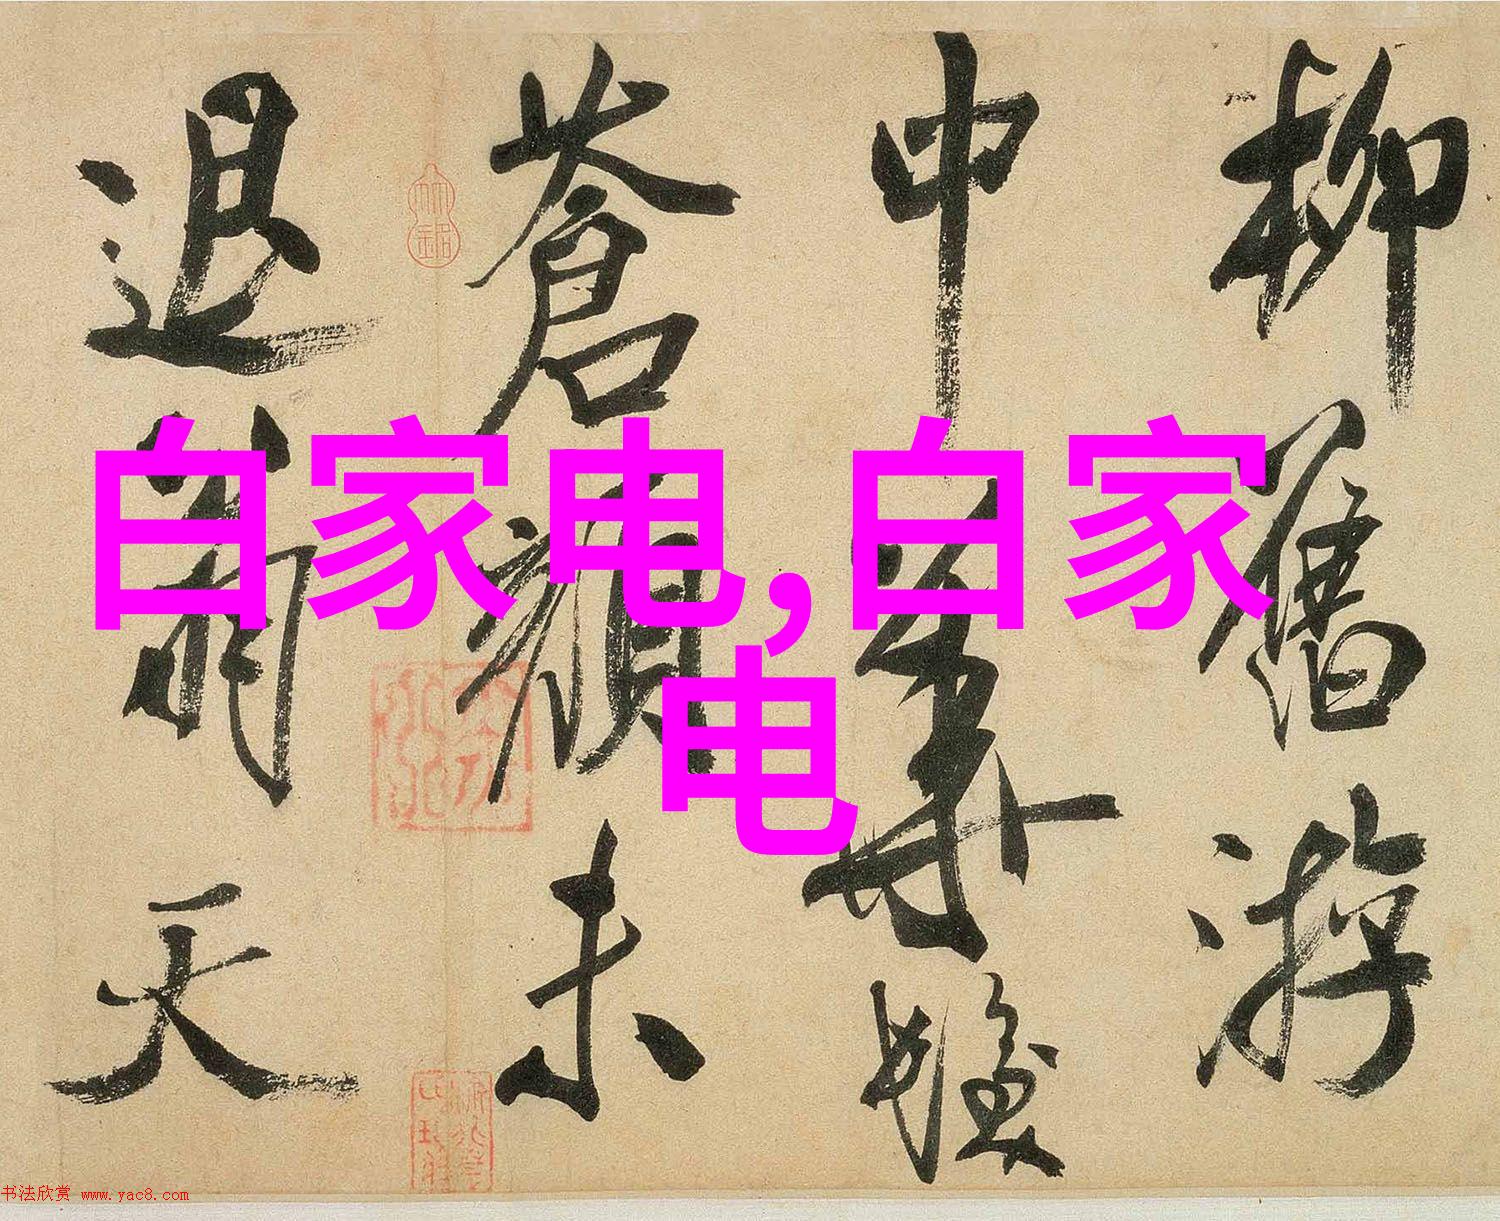 柳舊游
中華
蒼顏未
退天
白家电,白家
电
书法欣赏 www.yac8.com